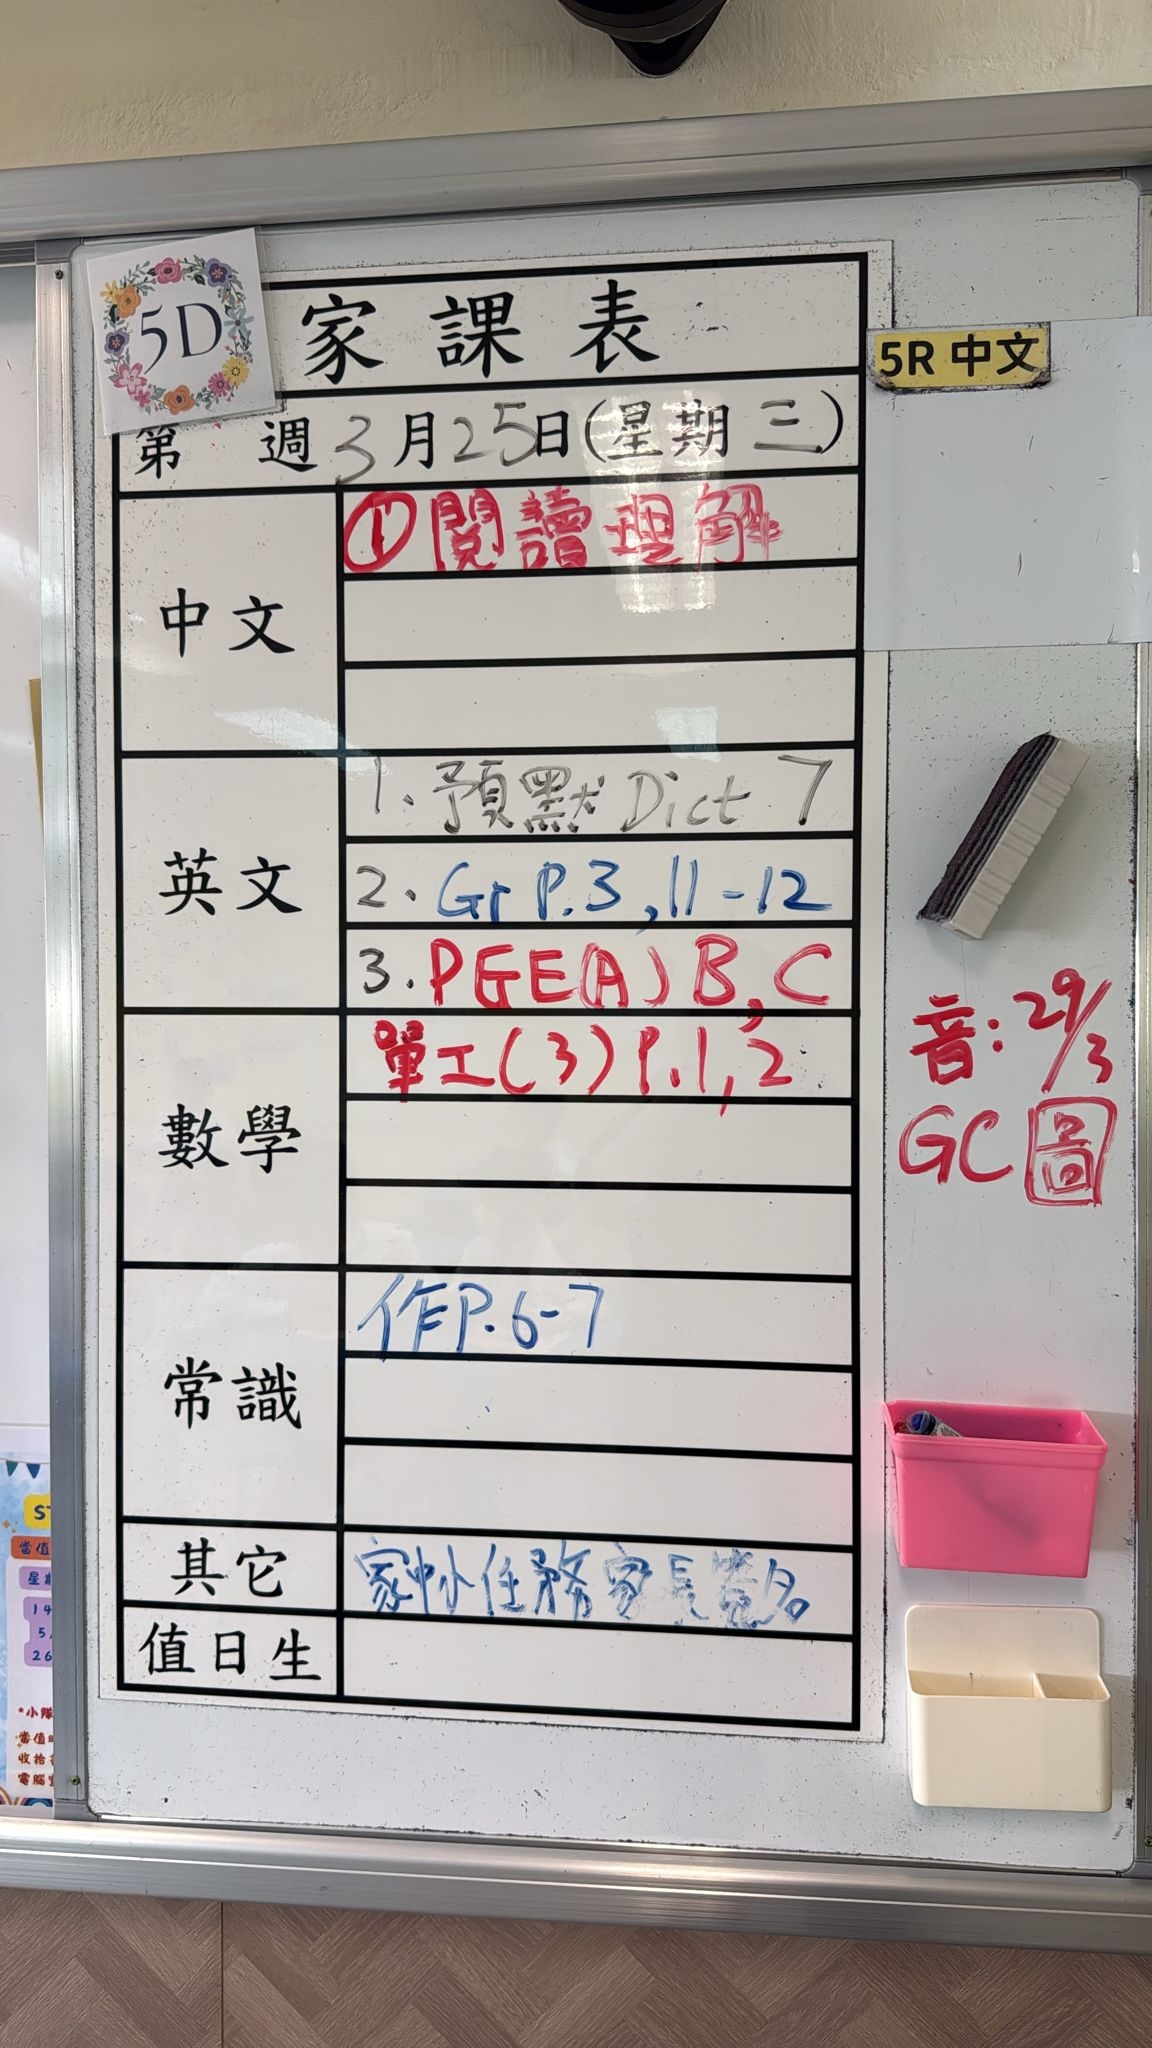 5D
家課表
5R 中文
第 週 3月25日(星期三)
中文
①閱讀理解
英文
1. 預默 Dict 7
2. Gr P.3, 11-12
3. PGE(A) B, C
數學
單工(3) P.1, 2
音: 29/3
GC 圖
常識
作P.6-7
其它
家中小任務家長簽名
值日生
當值
星
14
5
26
*小隊
當值
收拾
電腦